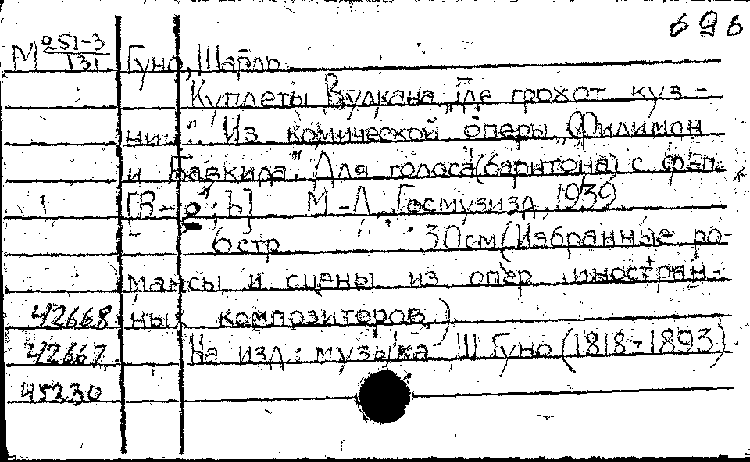 696
М 951-3
131
Гуно, Шарль.
Куплеты Вулкана "Где грохот куз-
ниц". Из комической оперы "Филимон
и Бавкида". Для голоса (баритона) с фп.
М-Л Госмузизд, 1939.
6 стр 30 см (Избранные ро-
мансы и сцены из опер иностран-
42668 ных композиторов.)
42667 На изд.: музыка Ш Гуно (1818-1893)
45230